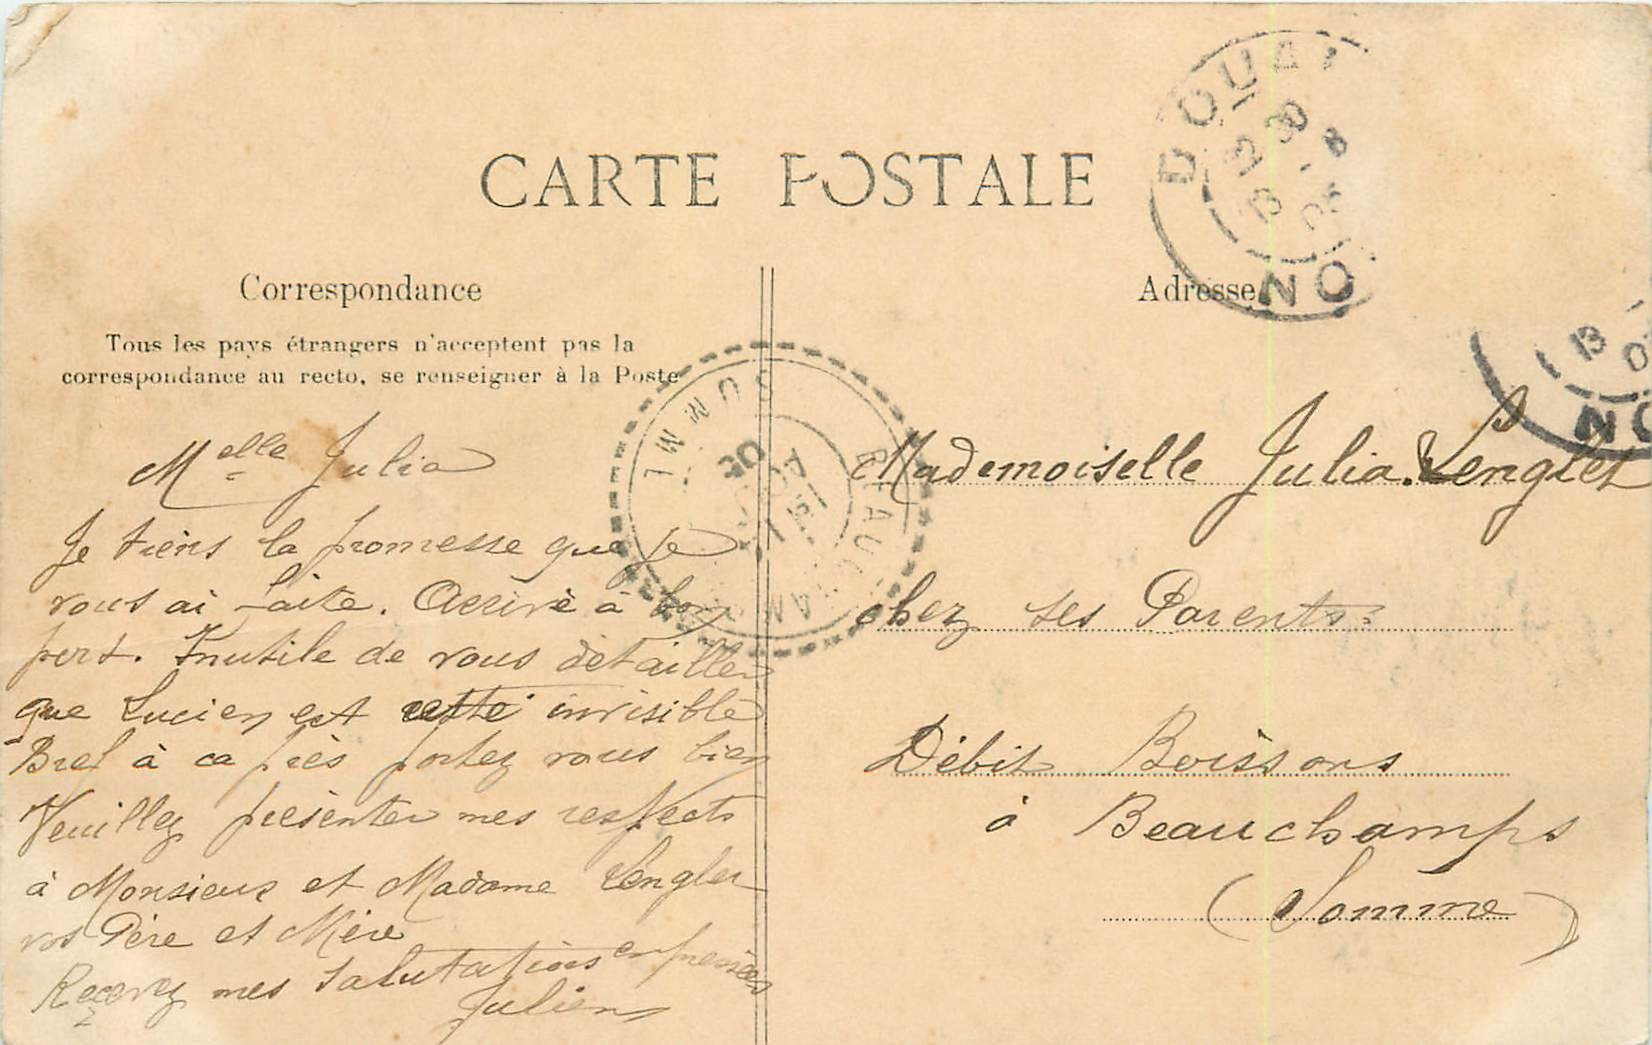 CARTE POSTALE
Correspondance
Tous les pays étrangers n'acceptent pas la
correspondance au recto, se renseigner à la Poste
Melle Julia
Je tiens la promesse que je
vous ai faite. Arrivé à bon
port. Inutile de vous détailler
que Lucien est resté invisible
Bref à ca près portez vous bien
Veuillez présenter mes respects
à Monsieur et Madame Lenglet
vos Père et Mère
Recevez mes salutations empressées
Julien
Adresse
Mademoiselle Julia Lenglet
chez ses Parents
Débit Boissons
à Beauchamps
(Somme)
DOUAI
12 30
13 - 8
06
NO
13
NO
SOMME
BEAUCHAMPS
06